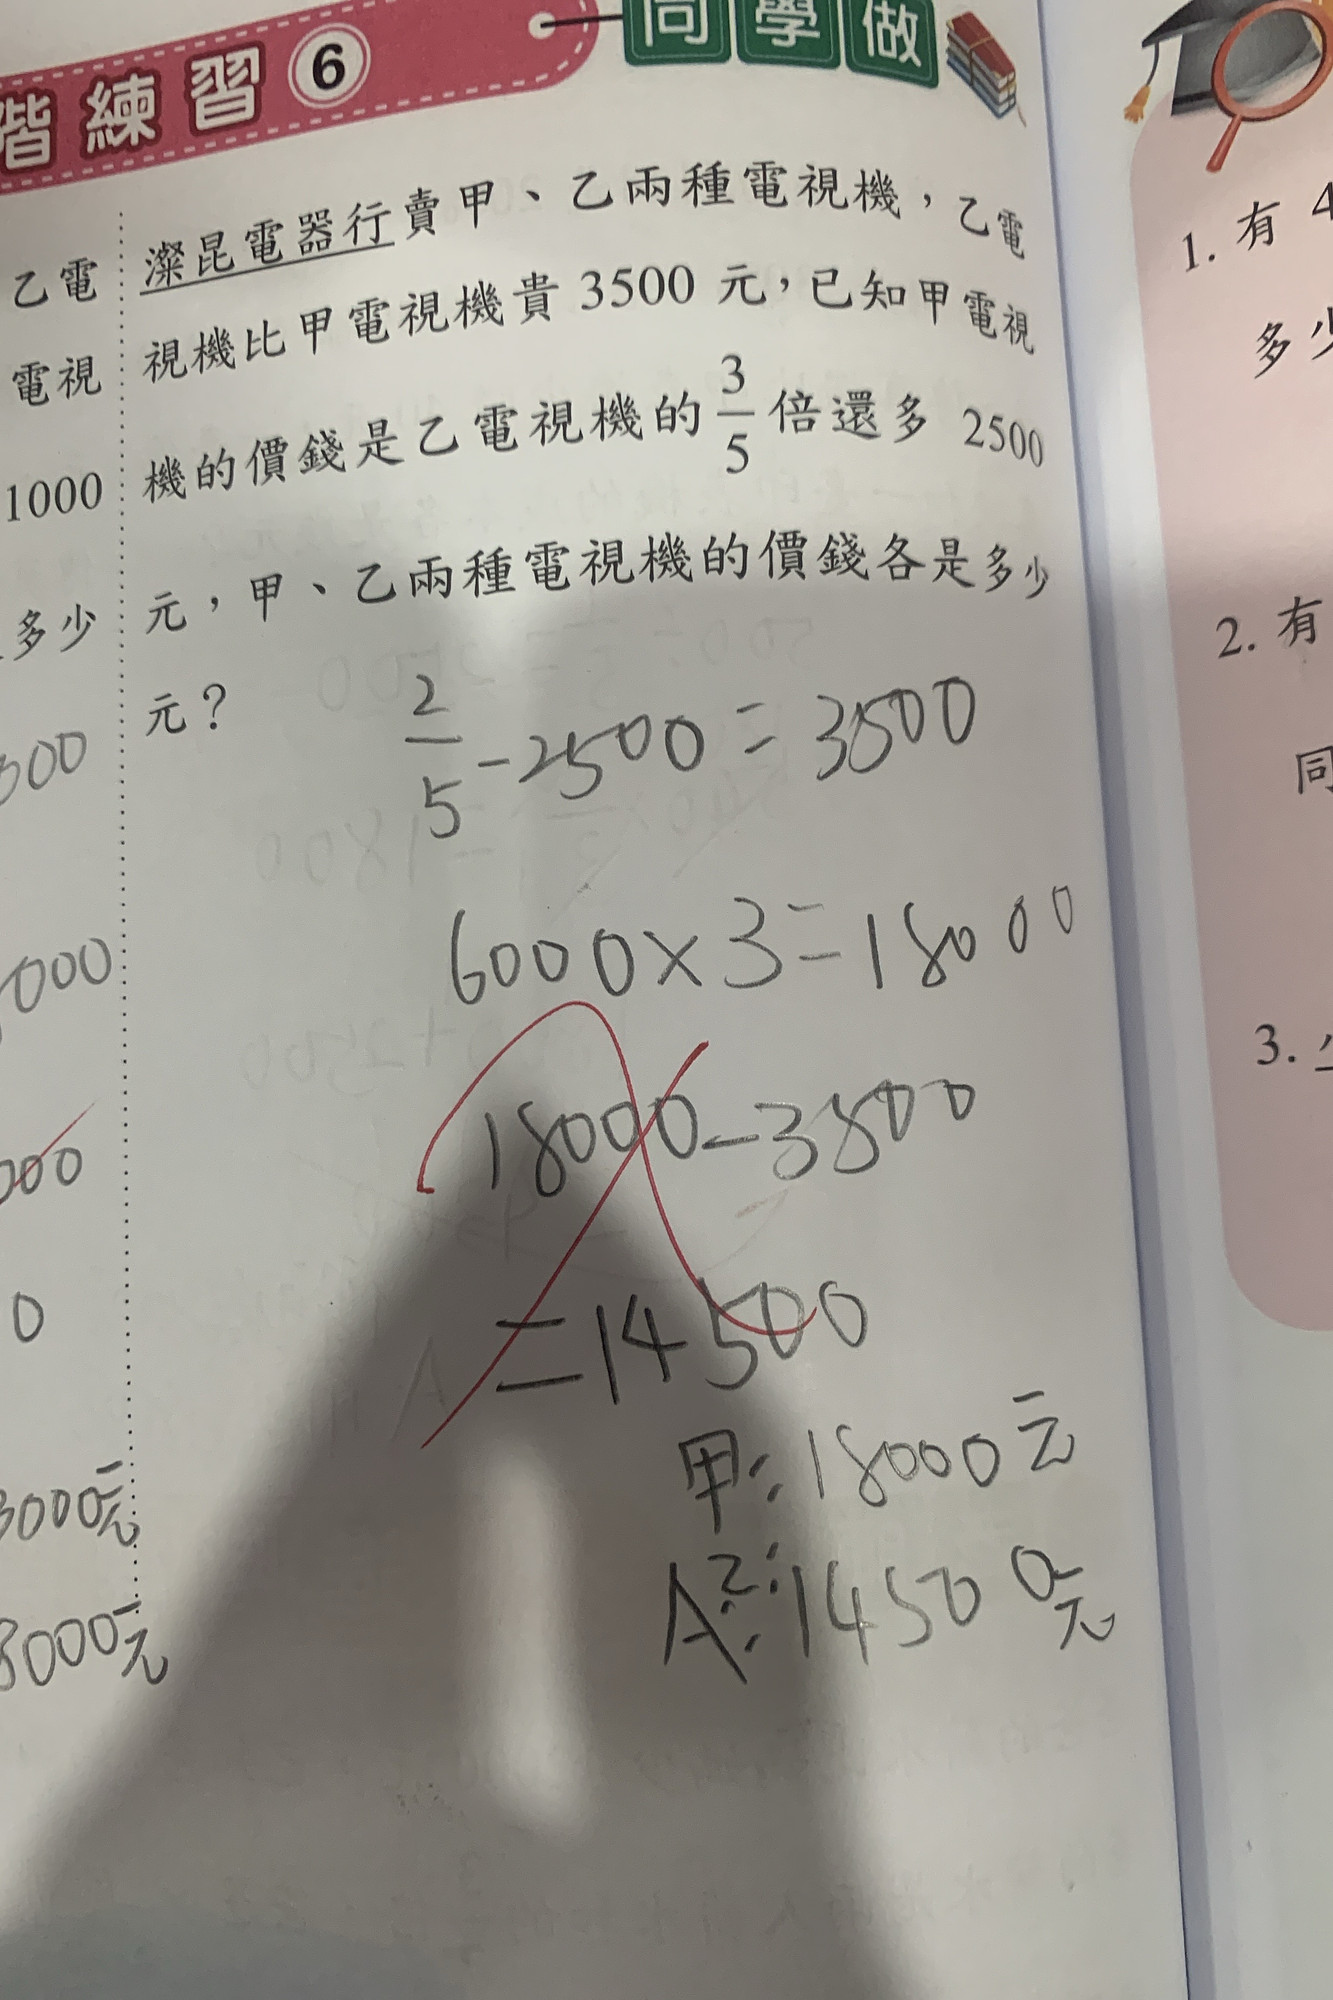 階練習⑥
同學做
乙電
電視
1000
多少
燦昆電器行賣甲、乙兩種電視機，乙電
視機比甲電視機貴 3500 元，已知甲電視
機的價錢是乙電視機的 3/5 倍還多 2500
元，甲、乙兩種電視機的價錢各是多少
元？
2/5 - 2500 = 3500
6000 × 3 = 18000
18000 - 3500
= 14500
甲：18000元
A：乙：14500元
000
0
3000元
8000元
1. 有 4
多少
2. 有
同
3.